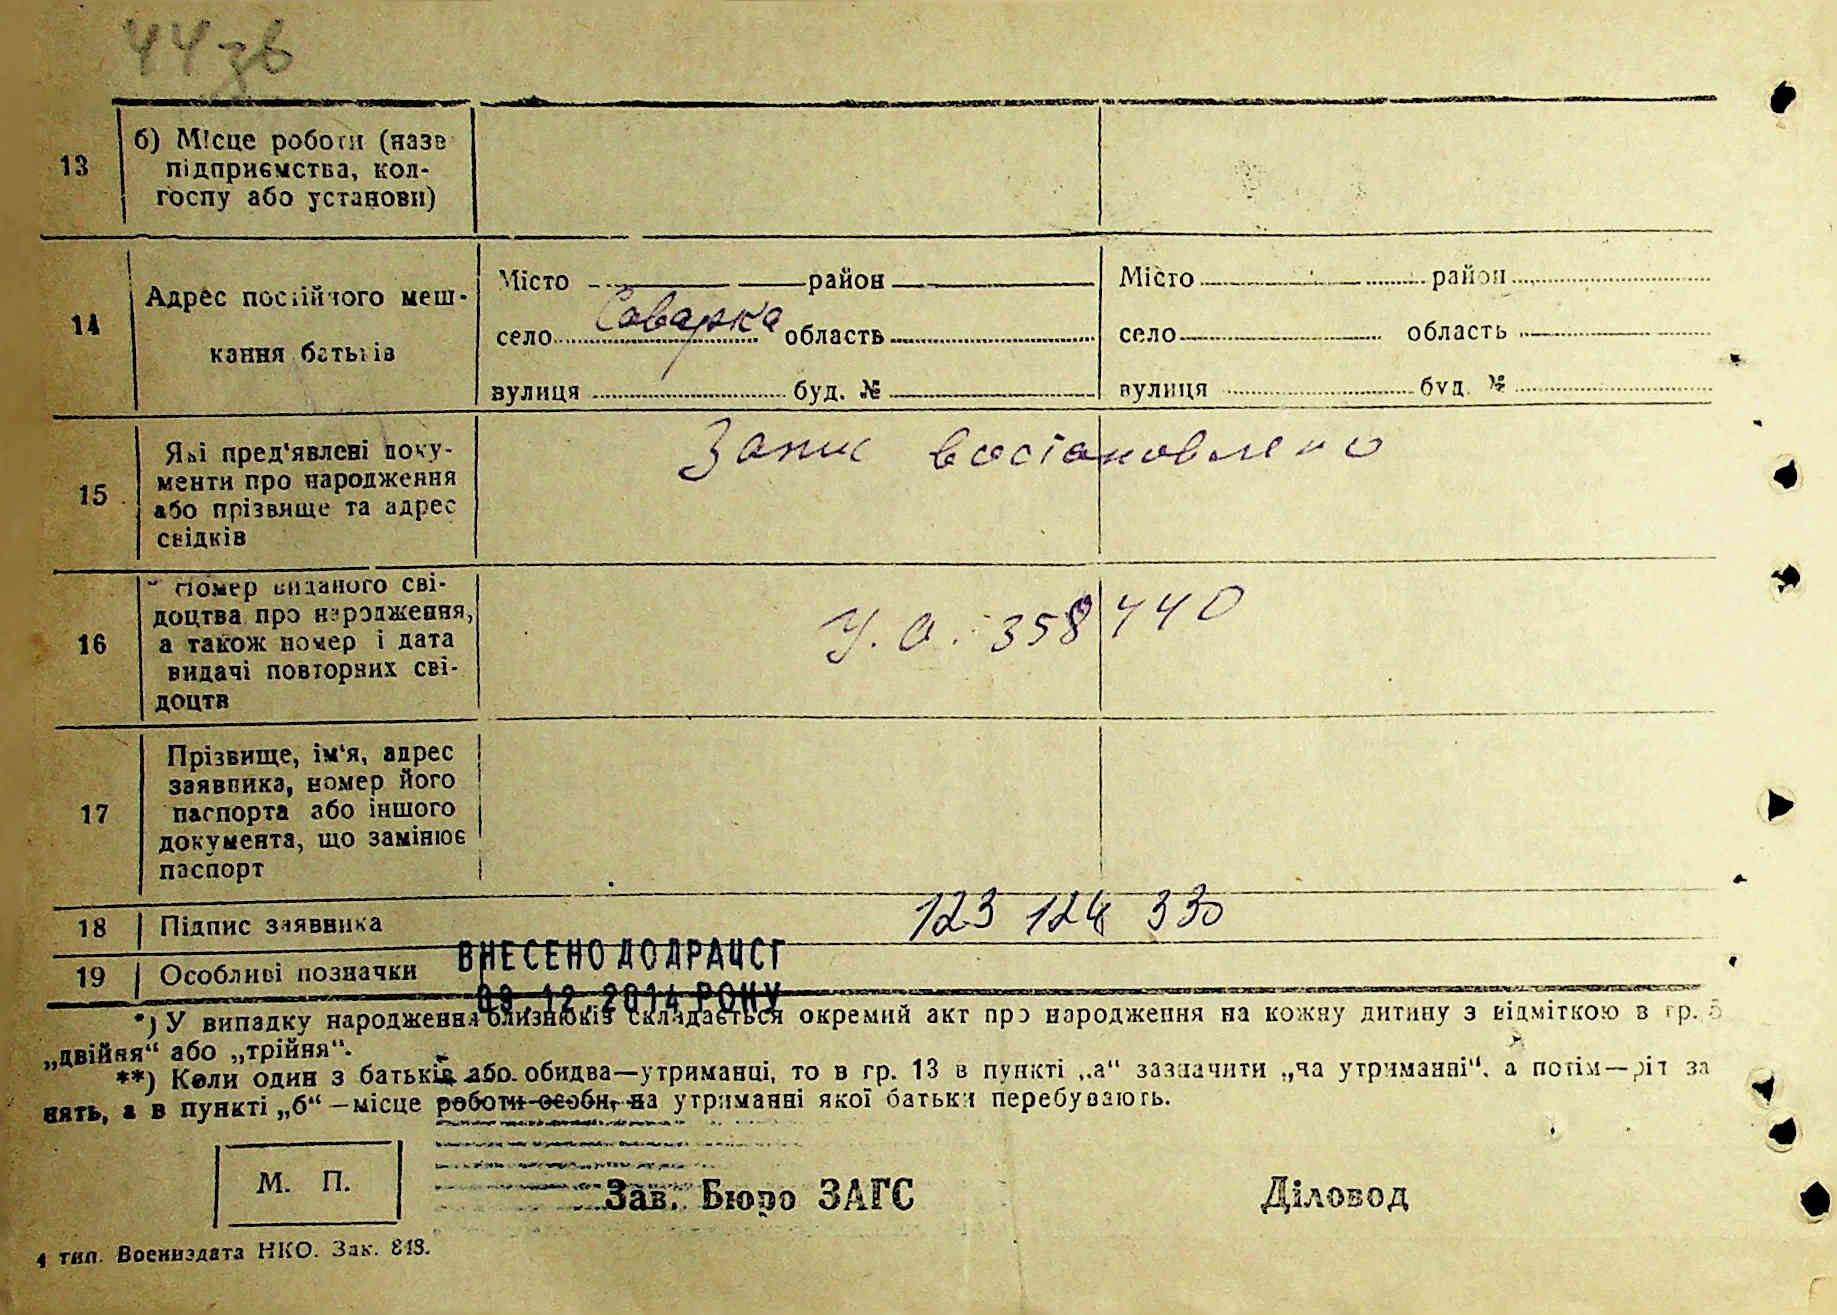 44 зв
13
б) Місце роботи (назв
підприємства, кол-
госпу або установи)
14
Адрес постійного меш-
кання батьків
Місто район
село Саварка область
вулиця буд. №
Місто район
село область
вулиця буд. №
15
Які пред'явлені доку-
менти про народження
або прізвище та адрес
свідків
Запис востановлено
16
Номер виданого сві-
доцтва про народження,
а також номер і дата
видачі повторних сві-
доцтв
У. О. 358440
17
Прізвище, ім'я, адрес
заявника, номер його
паспорта або іншого
документа, що замінює
паспорт
18
Підпис заявника
123 124 330
19
Особливі позначки
ВНЕСЕНО ДО ДРАЦСГ
09.12.2014 РОКУ
*) У випадку народження близнюків складається окремий акт про народження на кожну дитину з відміткою в гр. 5
„двійня“ або „трійня“.
**) Коли один з батьків або обидва—утриманці, то в гр. 13 в пункті „а“ зазначити „на утриманні“, а потім—ріт за
нять, а в пункті „б“—місце роботи особи, на утриманні якої батьки перебувають.
М. П.
Зав. Бюро ЗАГС
Діловод
4 тип. Воениздата НКО. Зак. 843.